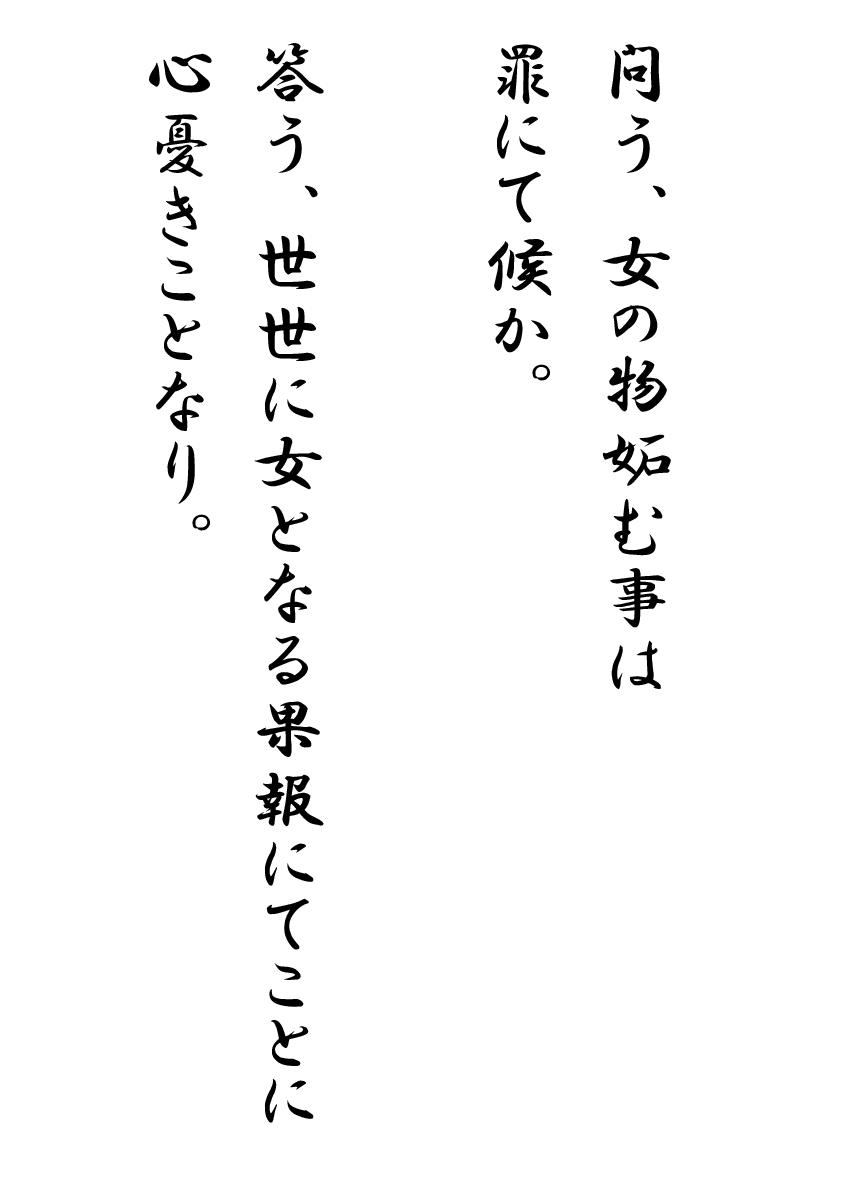 問う、女の物妬む事は
罪にて候か。
答う、世世に女となる果報にてことに
心憂きことなり。